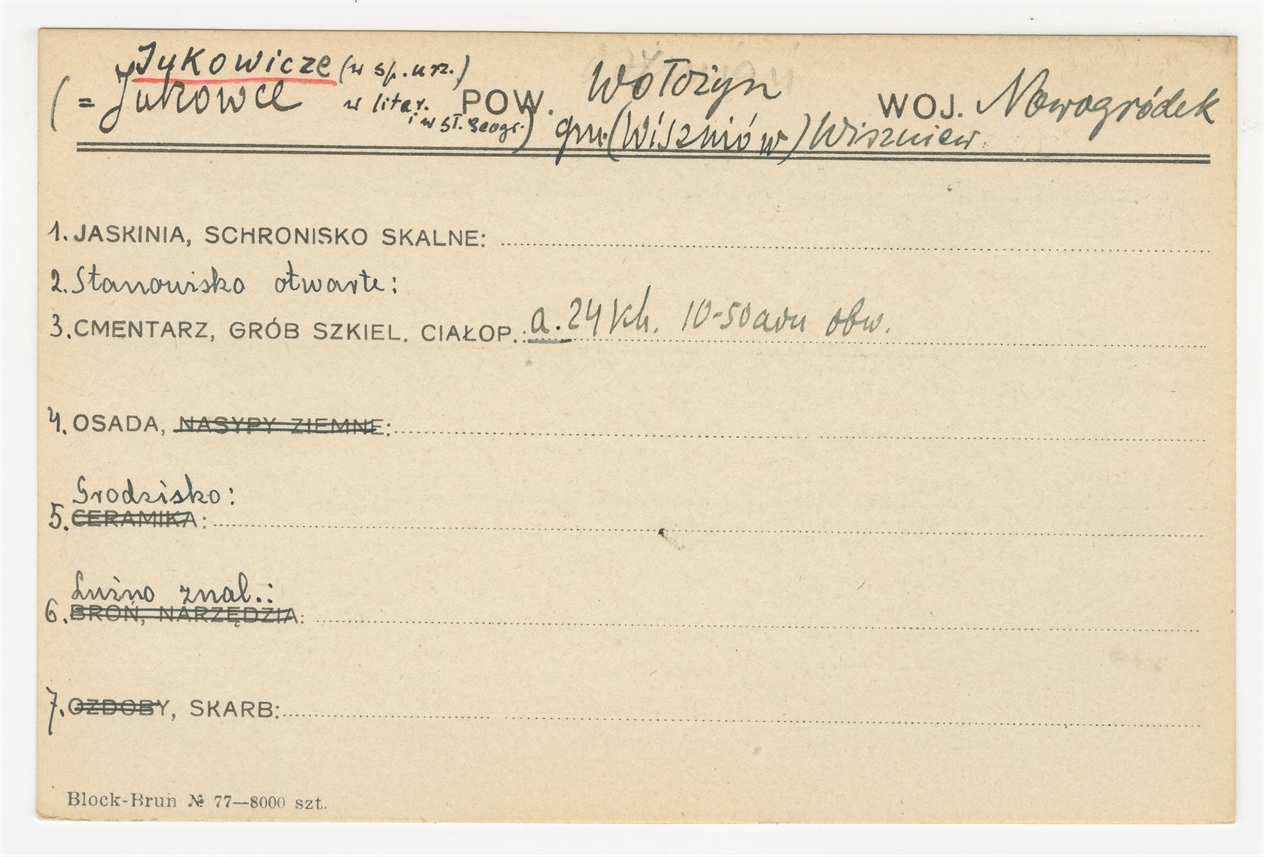 Jukowicze (w sp. urz.)
(= Jukowce w liter. i w Sł. Geogr.) POW. Wołożyn WOJ. Nowogródek
gm. (Wiszniów) Wiszniew.
1. JASKINIA, SCHRONISKO SKALNE:
2. Stanowisko otwarte:
3. CMENTARZ, GRÓB SZKIEL. CIAŁOP.: a. 24 kh. 10-50 obw.
4. OSADA, NASYPY ZIEMNE:
Grodzisko:
5. CERAMIKA:
Luźno znal.:
6. BROŃ, NARZĘDZIA:
7. OZDOBY, SKARB:
Block-Brun № 77—8000 szt.